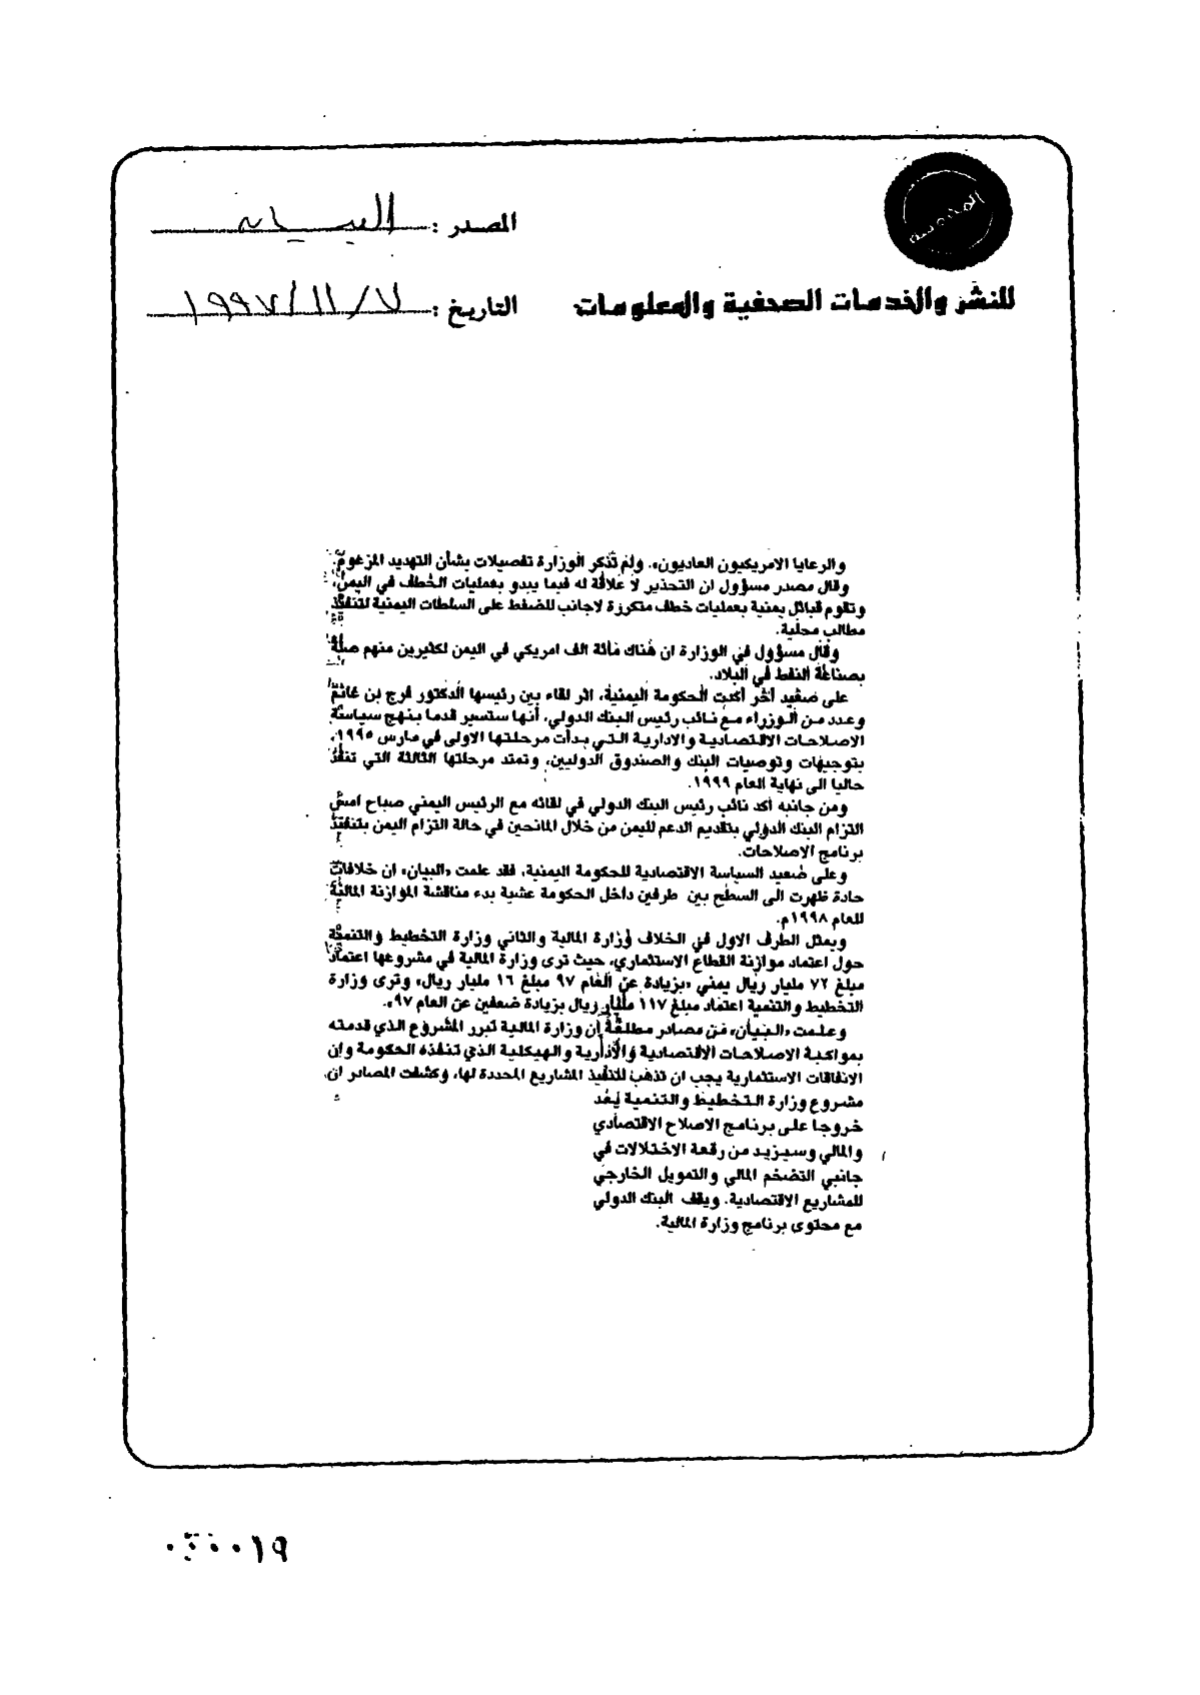 المصدر : البيان
للنشر والخدمات الصحفية والمعلومات
التاريخ : ٧/١١/١٩٩٧
والرعايا الامريكيون العاديون». ولم تذكر الوزارة تفصيلات بشأن التهديد المزعوم.
وقال مصدر مسؤول ان التحذير لا علاقة له فيما يبدو بعمليات الخطف في اليمن،
وتقوم قبائل يمنية بعمليات خطف متكررة لاجانب للضغط على السلطات اليمنية لتنفيذ
مطالب محلية.
وقال مسؤول في الوزارة ان هناك مائة الف امريكي في اليمن لكثيرين منهم صلة
بصناعة النفط في البلاد.
على صعيد آخر أكدت الحكومة اليمنية، اثر لقاء بين رئيسها الدكتور فرج بن غانم
وعدد من الوزراء مع نائب رئيس البنك الدولي، أنها ستسير قدما بنهج سياسة
الاصلاحات الاقتصادية والادارية التي بدأت مرحلتها الاولى في مارس ١٩٩٥،
بتوجيهات وتوصيات البنك والصندوق الدوليين، وتمتد مرحلتها الثالثة التي تنفذ
حاليا الى نهاية العام ١٩٩٩.
ومن جانبه أكد نائب رئيس البنك الدولي في لقائه مع الرئيس اليمني صباح امس
التزام البنك الدولي بتقديم الدعم لليمن من خلال المانحين في حالة التزام اليمن بتنفيذ
برنامج الاصلاحات.
وعلى صعيد السياسة الاقتصادية للحكومة اليمنية، فقد علمت «البيان» ان خلافات
حادة ظهرت الى السطح بين طرفين داخل الحكومة عشية بدء مناقشة الموازنة المالية
للعام ١٩٩٨م.
ويمثل الطرف الاول في الخلاف وزارة المالية والثاني وزارة التخطيط والتنمية
حول اعتماد موازنة القطاع الاستثماري، حيث ترى وزارة المالية في مشروعها اعتماد
مبلغ ٧٢ مليار ريال يمني «بزيادة عن العام ٩٧ مبلغ ١٦ مليار ريال» وترى وزارة
التخطيط والتنمية اعتماد مبلغ ١١٧ مليار ريال بزيادة ضعفين عن العام ٩٧».
وعلمت «البيان» من مصادر مطلعة إن وزارة المالية تبرر المشروع الذي قدمته
بمواكبة الاصلاحات الاقتصادية والادارية والهيكلية الذي تنفذه الحكومة وإن
الانفاقات الاستثمارية يجب ان تذهب لتنفيذ المشاريع المحددة لها، وكشفت المصادر ان
مشروع وزارة التخطيط والتنمية يعد
خروجا على برنامج الاصلاح الاقتصادي
والمالي وسيزيد من رقعة الاختلالات في
جانبي التضخم المالي والتمويل الخارجي
للمشاريع الاقتصادية. ويقف البنك الدولي
مع محتوى برنامج وزارة المالية.